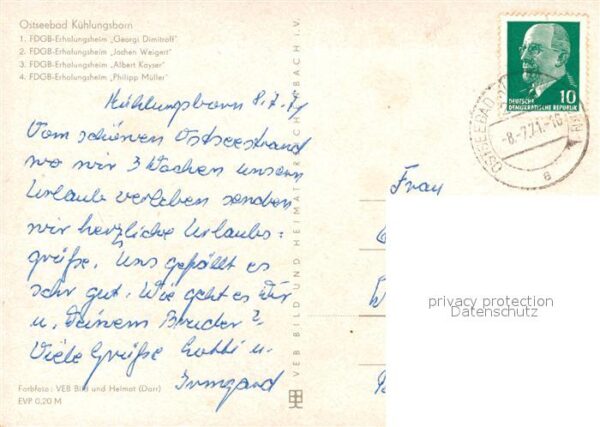 Ostseebad Kühlungsborn
1. FDGB-Erholungsheim „Georgi Dimitroff"
2. FDGB-Erholungsheim „Jochen Weigert"
3. FDGB-Erholungsheim „Albert Kayser"
4. FDGB-Erholungsheim „Philipp Müller"
Kühlungsborn 8.7.71
Vom schönen Ostseestrand
wo wir 3 Wochen unsern
Urlaub verleben senden
wir herzliche Urlaubs=
grüße. Uns gefällt es
sehr gut. Wie geht es Dir
u. Deinem Bruder?
Viele Grüße Lotti u.
Irmgard
Farbfoto: VEB Bild und Heimat (Darr)
EVP 0,20 M
VEB BILD UND HEIMAT REICHENBACH i. V.
DEUTSCHE
DEMOKRATISCHE REPUBLIK
10
OSTSEEBAD
-8.-7.71.-16
e
Frau
privacy protection
Datenschutz